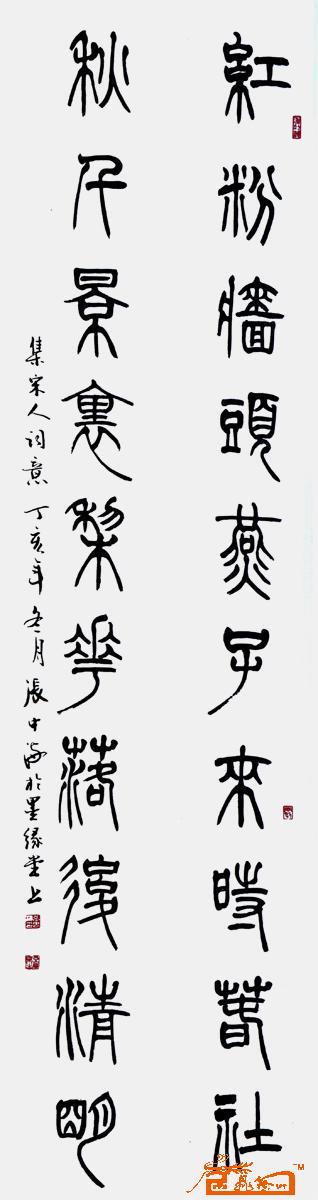 紅粉牆頭燕子來時萅社
秋千景裏梨花落後清明
集宋人词意 丁亥年冬月 張中海於墨緣堂上